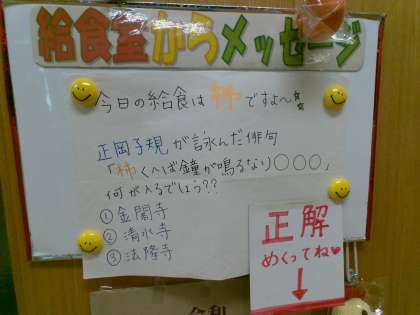 給食室からメッセージ
今日の給食は柿ですよ〜☆
正岡子規が詠んだ俳句
「柿くへば鐘が鳴るなり○○○」
何が入るでしょう??
①金閣寺
②清水寺
③法隆寺
正解
めくってね♥
↓